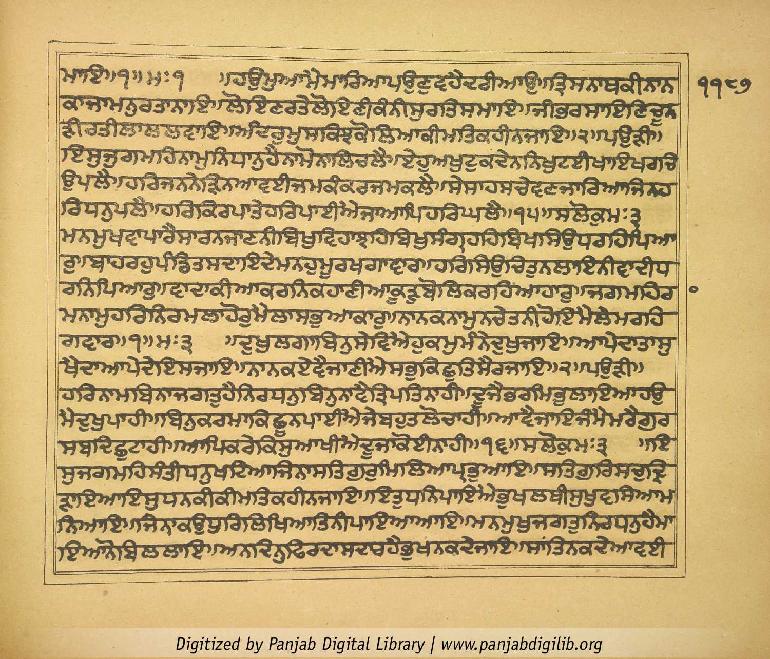 ਮਾਇ॥੧॥ਮਃ੧ ॥ਹਉਮੁਆਮੈਮਾਰਿਆਪਉਣੁਵਹੈਦਰੀਆਉ॥ਤ੍ਰਿਸਨਾਥਕੀਨਾਨ ੧੧੮੭
ਕਾਜਾਮਨੁਰਤਾਨਾਇ॥ਲੋਇਣਰਤੇਲੋਇਣੀਕੰਨੀਸੁਰਤਿਸਮਾਇ॥ਜੀਭਰਸਾਇਣਿਚੂਨ
ੜੀਰਤੀਲਾਲਲਵਾਇ॥ਅੰਦਰੁਮੁਸਕਿਝਕੋਲਿਆਕੀਮਤਿਕਹੀਨਜਾਇ॥੨॥ਪਉੜੀ॥
ਇਸੁਜੁਗਮਹਿਨਾਮੁਨਿਧਾਨੁਹੈਨਾਮੋਨਾਲਿਚਲੈ॥ਏਹੁਅਖੁਟੁਕਦੇਨਨਿਖੁਟਈਖਾਇਖਰਚਿ
ਉਪਲੈ॥ਹਰਿਜਨਨੇੜਿਨਆਵਈਜਮਕੰਕਰਜਮਕਲੈ॥ਸੇਸਾਹਸਚੇਵਣਜਾਰਿਆਜਿਨਹ
ਰਿਧਨੁਪਲੈ॥ਹਰਿਕਿਰਪਾਤੇਹਰਿਪਾਈਐਜਾਆਪਿਹਰਿਘਲੈ॥੧੫॥ਸਲੋਕੁਮਃ੩
ਮਨਮੁਖਵਾਪਾਰੈਸਾਰਨਜਾਣਨੀਬਿਖੁਵਿਹਾਝਹਿਬਿਖੁਸੰਗ੍ਰਹਹਿਬਿਖਸਿਉਧਰਹਿਪਿਆ
ਰੁ॥ਬਾਹਰਹੁਪੰਡਿਤਸਦਾਇਦੇਮਨਹੁਮੂਰਖਗਾਵਾਰ॥ਹਰਿਸਿਉਚਿਤੁਨਲਾਇਨੀਵਾਦੀਧ
ਰਨਿਪਿਆਰੁ॥ਵਾਦਾਕੀਆਕਰਨਿਕਹਾਣੀਆਕੂੜੁਬੋਲਿਕਰਹਿਆਹਾਰੁ॥ਜਗਮਹਿਰ
ਮਨਾਮੁਹਰਿਨਿਰਮਲਾਹੋਰੁਮੈਲਾਸਭੁਆਕਾਰੁ॥ਨਾਨਕਨਾਮੁਨਚੇਤਨੀਹੋਇਮੈਲੇਮਰਹਿ
ਗਵਾਰ॥੧॥ਮਃ੩ ॥ਦੁਖੁਲਗਾਬਿਨੁਸੇਵਿਐਹੁਕਮੁਮੰਨੇਦੁਖੁਜਾਇ॥ਆਪੇਦਾਤਾਸੁ
ਖੈਦਾਆਪੇਦੇਇਸਜਾਇ॥ਨਾਨਕਏਵੈਜਾਣੀਐਸਭੁਕਿਛੁਤਿਸੈਰਜਾਇ॥੨॥ਪਉੜੀ॥
ਹਰਿਨਾਮਬਿਨਾਜਗਤੁਹੈਨਿਰਧਨੁਬਿਨੁਨਾਵੈਤ੍ਰਿਪਤਿਨਾਹੀ॥ਦੂਜੈਭਰਮਿਭੁਲਾਇਆਹਉ
ਮੈਦੁਖੁਪਾਹੀ॥ਬਿਨੁਕਰਮਾਕਿਛੂਨਪਾਈਐਜੇਬਹੁਤੁਲੋਚਾਹੀ॥ਆਵੈਜਾਇਜੰਮੈਮਰੈਗੁਰ
ਸਬਦਿਛੁਟਾਹੀ॥ਆਪਿਕਰੈਕਿਸੁਆਖੀਐਦੂਜਾਕੋਈਨਾਹੀ॥੧੬॥ਸਲੋਕੁਮਃ੩ ॥ਇ
ਸੁਜਗਮਹਿਸੰਤੀਧਨੁਖਟਿਆਜਿਨਾਸਤਿਗੁਰੁਮਿਲਿਆਪ੍ਰਭੁਆਇ॥ਸਤਿਗੁਰਿਸਚੁਦ੍ਰਿ
ੜਾਇਆਇਸੁਧਨਕੀਕੀਮਤਿਕਹੀਨਜਾਇ॥ਇਤੁਧਨਿਪਾਇਐਭੁਖਲਥੀਸੁਖੁਵਸਿਆਮ
ਨਿਆਇ॥ਜਿੰਨਾਕਉਧੁਰਿਲਿਖਿਆਤਿਨੀਪਾਇਆਆਇ॥ਮਨਮੁਖੁਜਗਤੁਨਿਰਧਨੁਹੈਮਾ
ਇਆਨੋਬਿਲਲਾਇ॥ਅਨਦਿਨੁਫਿਰਦਾਸਦਾਰਹੈਭੁਖਨਕਦੇਜਾਇ॥ਸਾਂਤਿਨਕਦੇਆਵਈ
Digitized by Panjab Digital Library | www.panjabdigilib.org